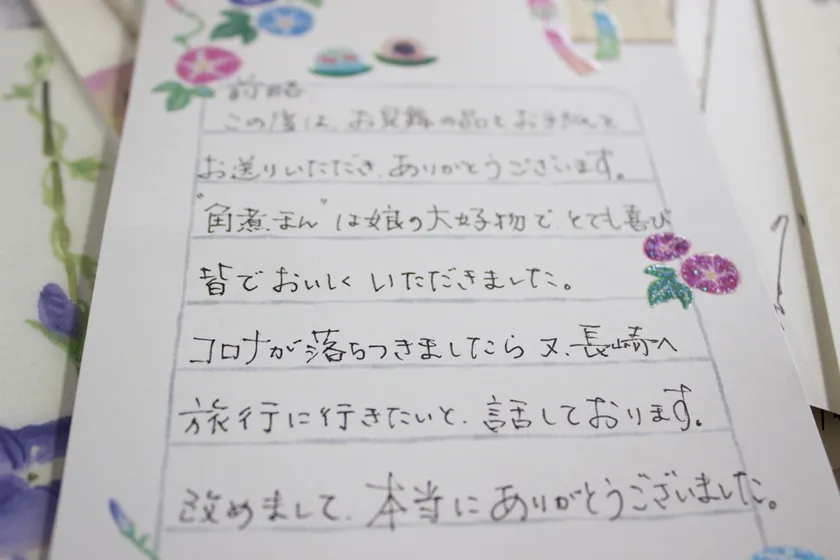 前略
この度は、お見舞の品とお手紙を
お送りいただき、ありがとうございます。
"角煮まん"は娘の大好物で、とても喜び
皆でおいしくいただきました。
コロナが落ちつきましたら又、長崎へ
旅行に行きたいと、話しております。
改めまして、本当にありがとうございました。